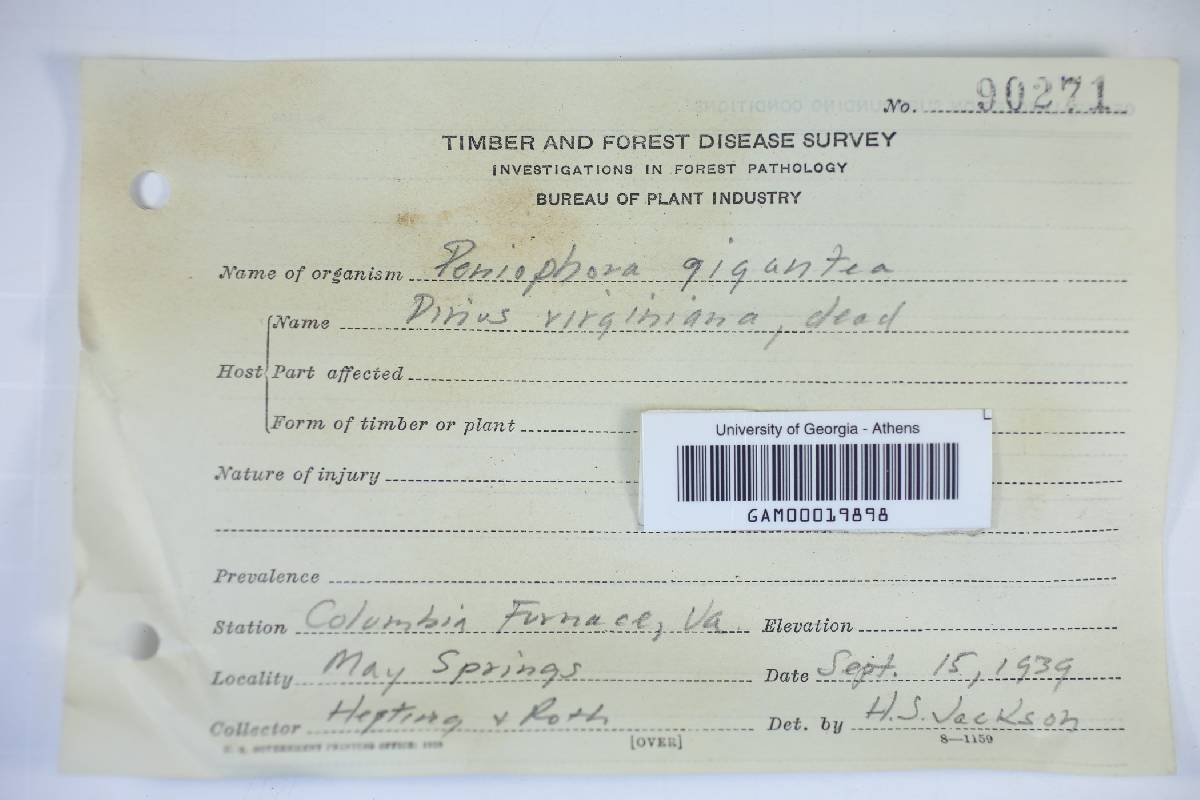 No. 90271
TIMBER AND FOREST DISEASE SURVEY
INVESTIGATIONS IN FOREST PATHOLOGY
BUREAU OF PLANT INDUSTRY
Name of organism Peniophora gigantea
Name Pinus virginiana, dead
Host Part affected
Form of timber or plant
University of Georgia - Athens
Nature of injury
GAM00019898
Prevalence
Station Columbia Furnace, Va Elevation
Locality May Springs Date Sept. 15, 1939
Collector Hepting & Roth Det. by H.S. Jackson
U. S. GOVERNMENT PRINTING OFFICE: [OVER] 8—1159